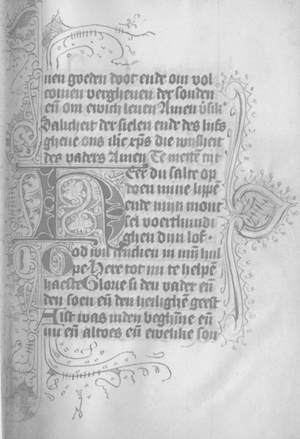 nen goeden doot ende om vol
comen vergheuen der sonden
eñ om ewich leuen Amen
Salicheit der sielen ende des lijfs
gheue ons ihc xp̄s die wijsheit
des vaders Amen Te mettē tijt
HEre du salte op
doen mine lippē
ende mijn mont
sel voert kundi
ghen dijn lof
God wil dencken in mijn hul
pe Here tot mi te helpē
haeste Glorie si den vader eñ
den soen eñ den heilighē gheest
Alst was inden beghīne eñ
nu eñ altoes eñ ewelike son